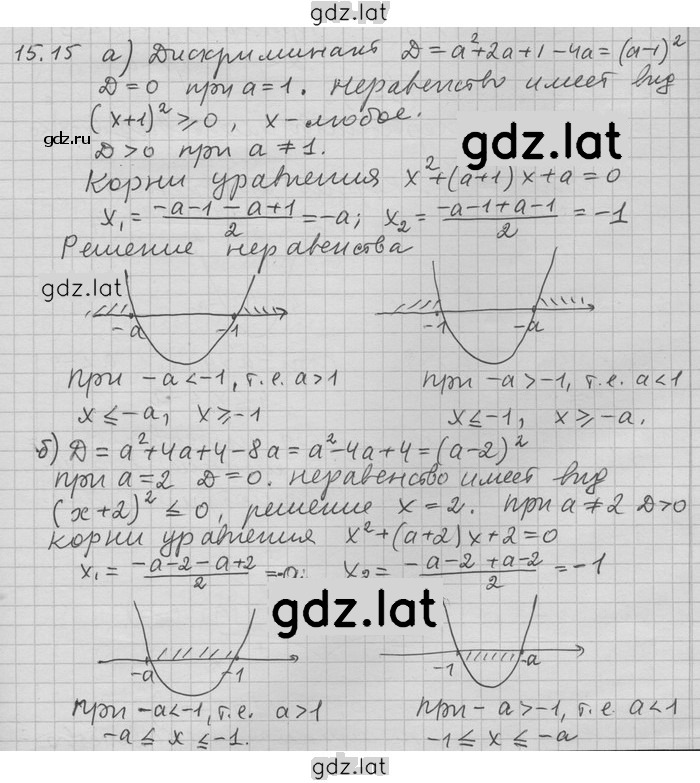 gdz.lat
15.15 а) Дискриминант D = a²+2a+1-4a = (a-1)²
D=0 при a=1. Неравенство имеет вид
(x+1)² ⩾ 0, x-любое.
gdz.lat
gdz.lat
D>0 при a ≠ 1.
Корни уравнения x²+(a+1)x+a=0
x₁ = (-a-1-a+1)/2 = -a; x₂ = (-a-1+a-1)/2 = -1
Решение неравенства
gdz.lat
-a -1 -1 -a
при -a<-1, т.е. a>1 при -a>-1, т.е. a<1
x⩽-a, x⩾-1 x⩽-1, x⩾-a.
б) D = a²+4a+4-8a = a²-4a+4 = (a-2)²
при a=2 D=0. Неравенство имеет вид
(x+2)² ⩽ 0, решение x=2. при a≠2 D>0
корни уравнения x²+(a+2)x+2=0
x₁ = (-a-2-a+2)/2 = x₂ = (-a-2+a-2)/2 = -1
gdz.lat
-a -1 -1 -a
при -a<-1, т.е. a>1 при -a>-1, т.е. a<1
-a ⩽ x ⩽ -1. -1 ⩽ x ⩽ -a
gdz.lat